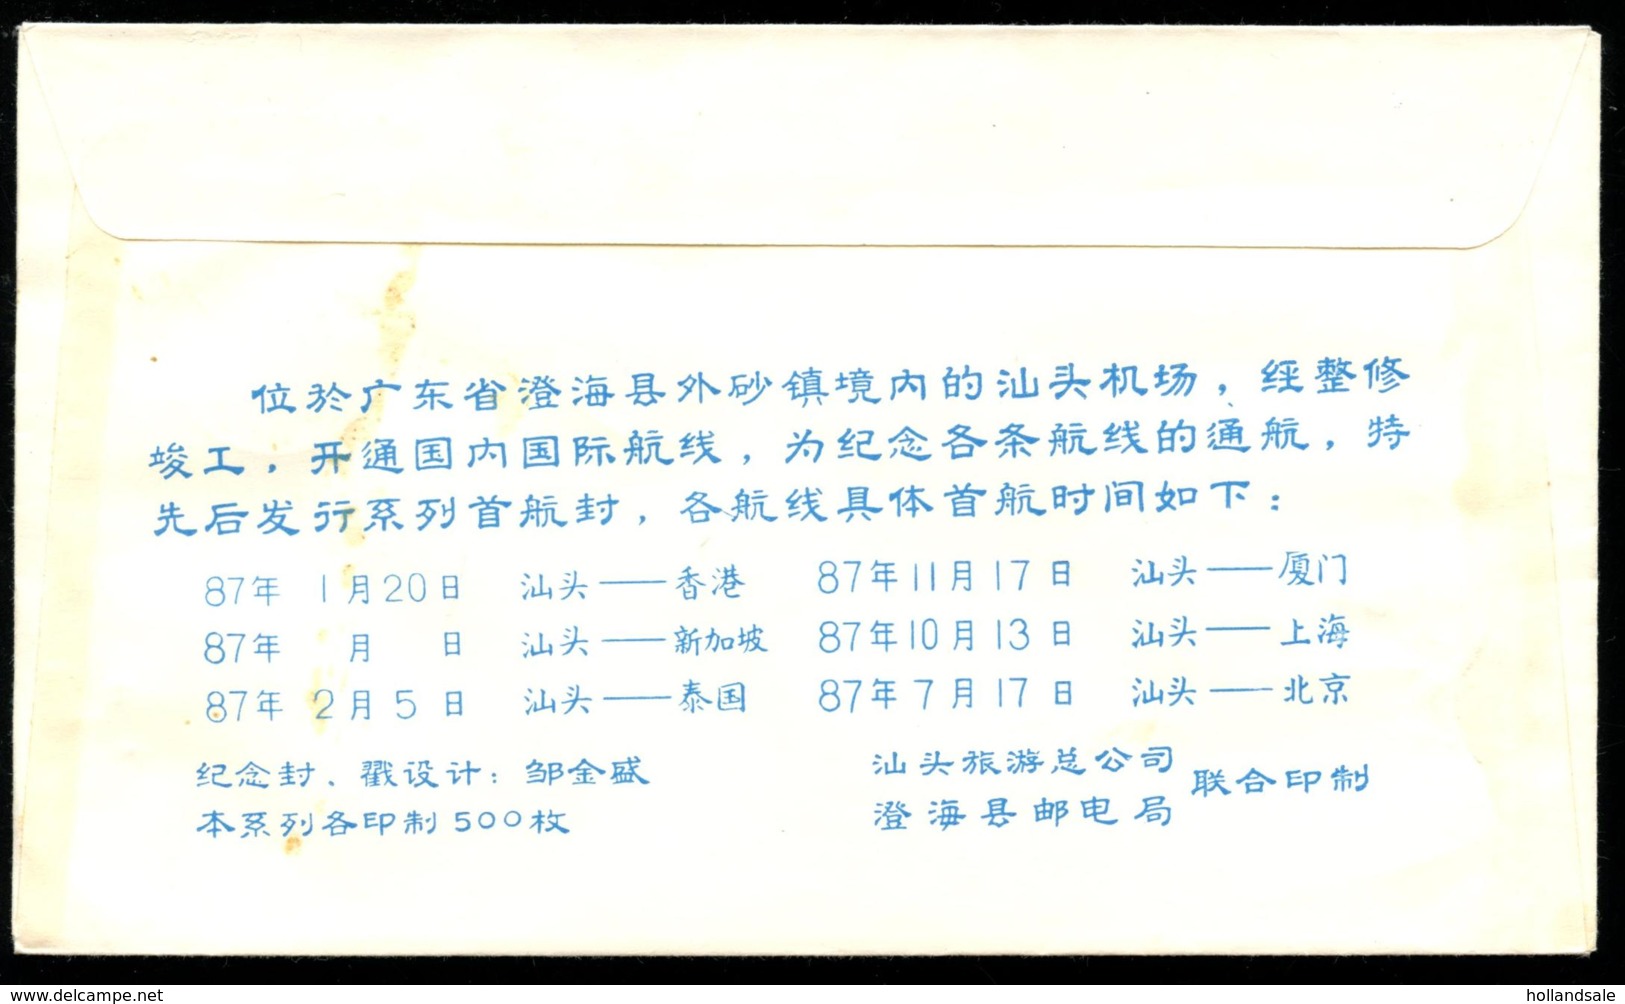 位於广东省澄海县外砂镇境内的汕头机场，经整修
竣工，开通国内国际航线，为纪念各条航线的通航，特
先后发行系列首航封，各航线具体首航时间如下：
87年 1月20日 汕头——香港 87年11月17日 汕头——厦门
87年 月 日 汕头——新加坡 87年10月13日 汕头——上海
87年 2月 5日 汕头——泰国 87年 7月17日 汕头——北京
纪念封、戳设计：邹金盛
本系列各印制500枚
汕头旅游总公司
澄海县邮电局
联合印制
delcampe.net
hollandsale